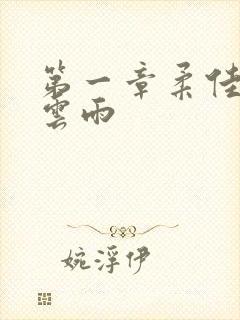 第一章柔佳
雲雨
婉浮伊